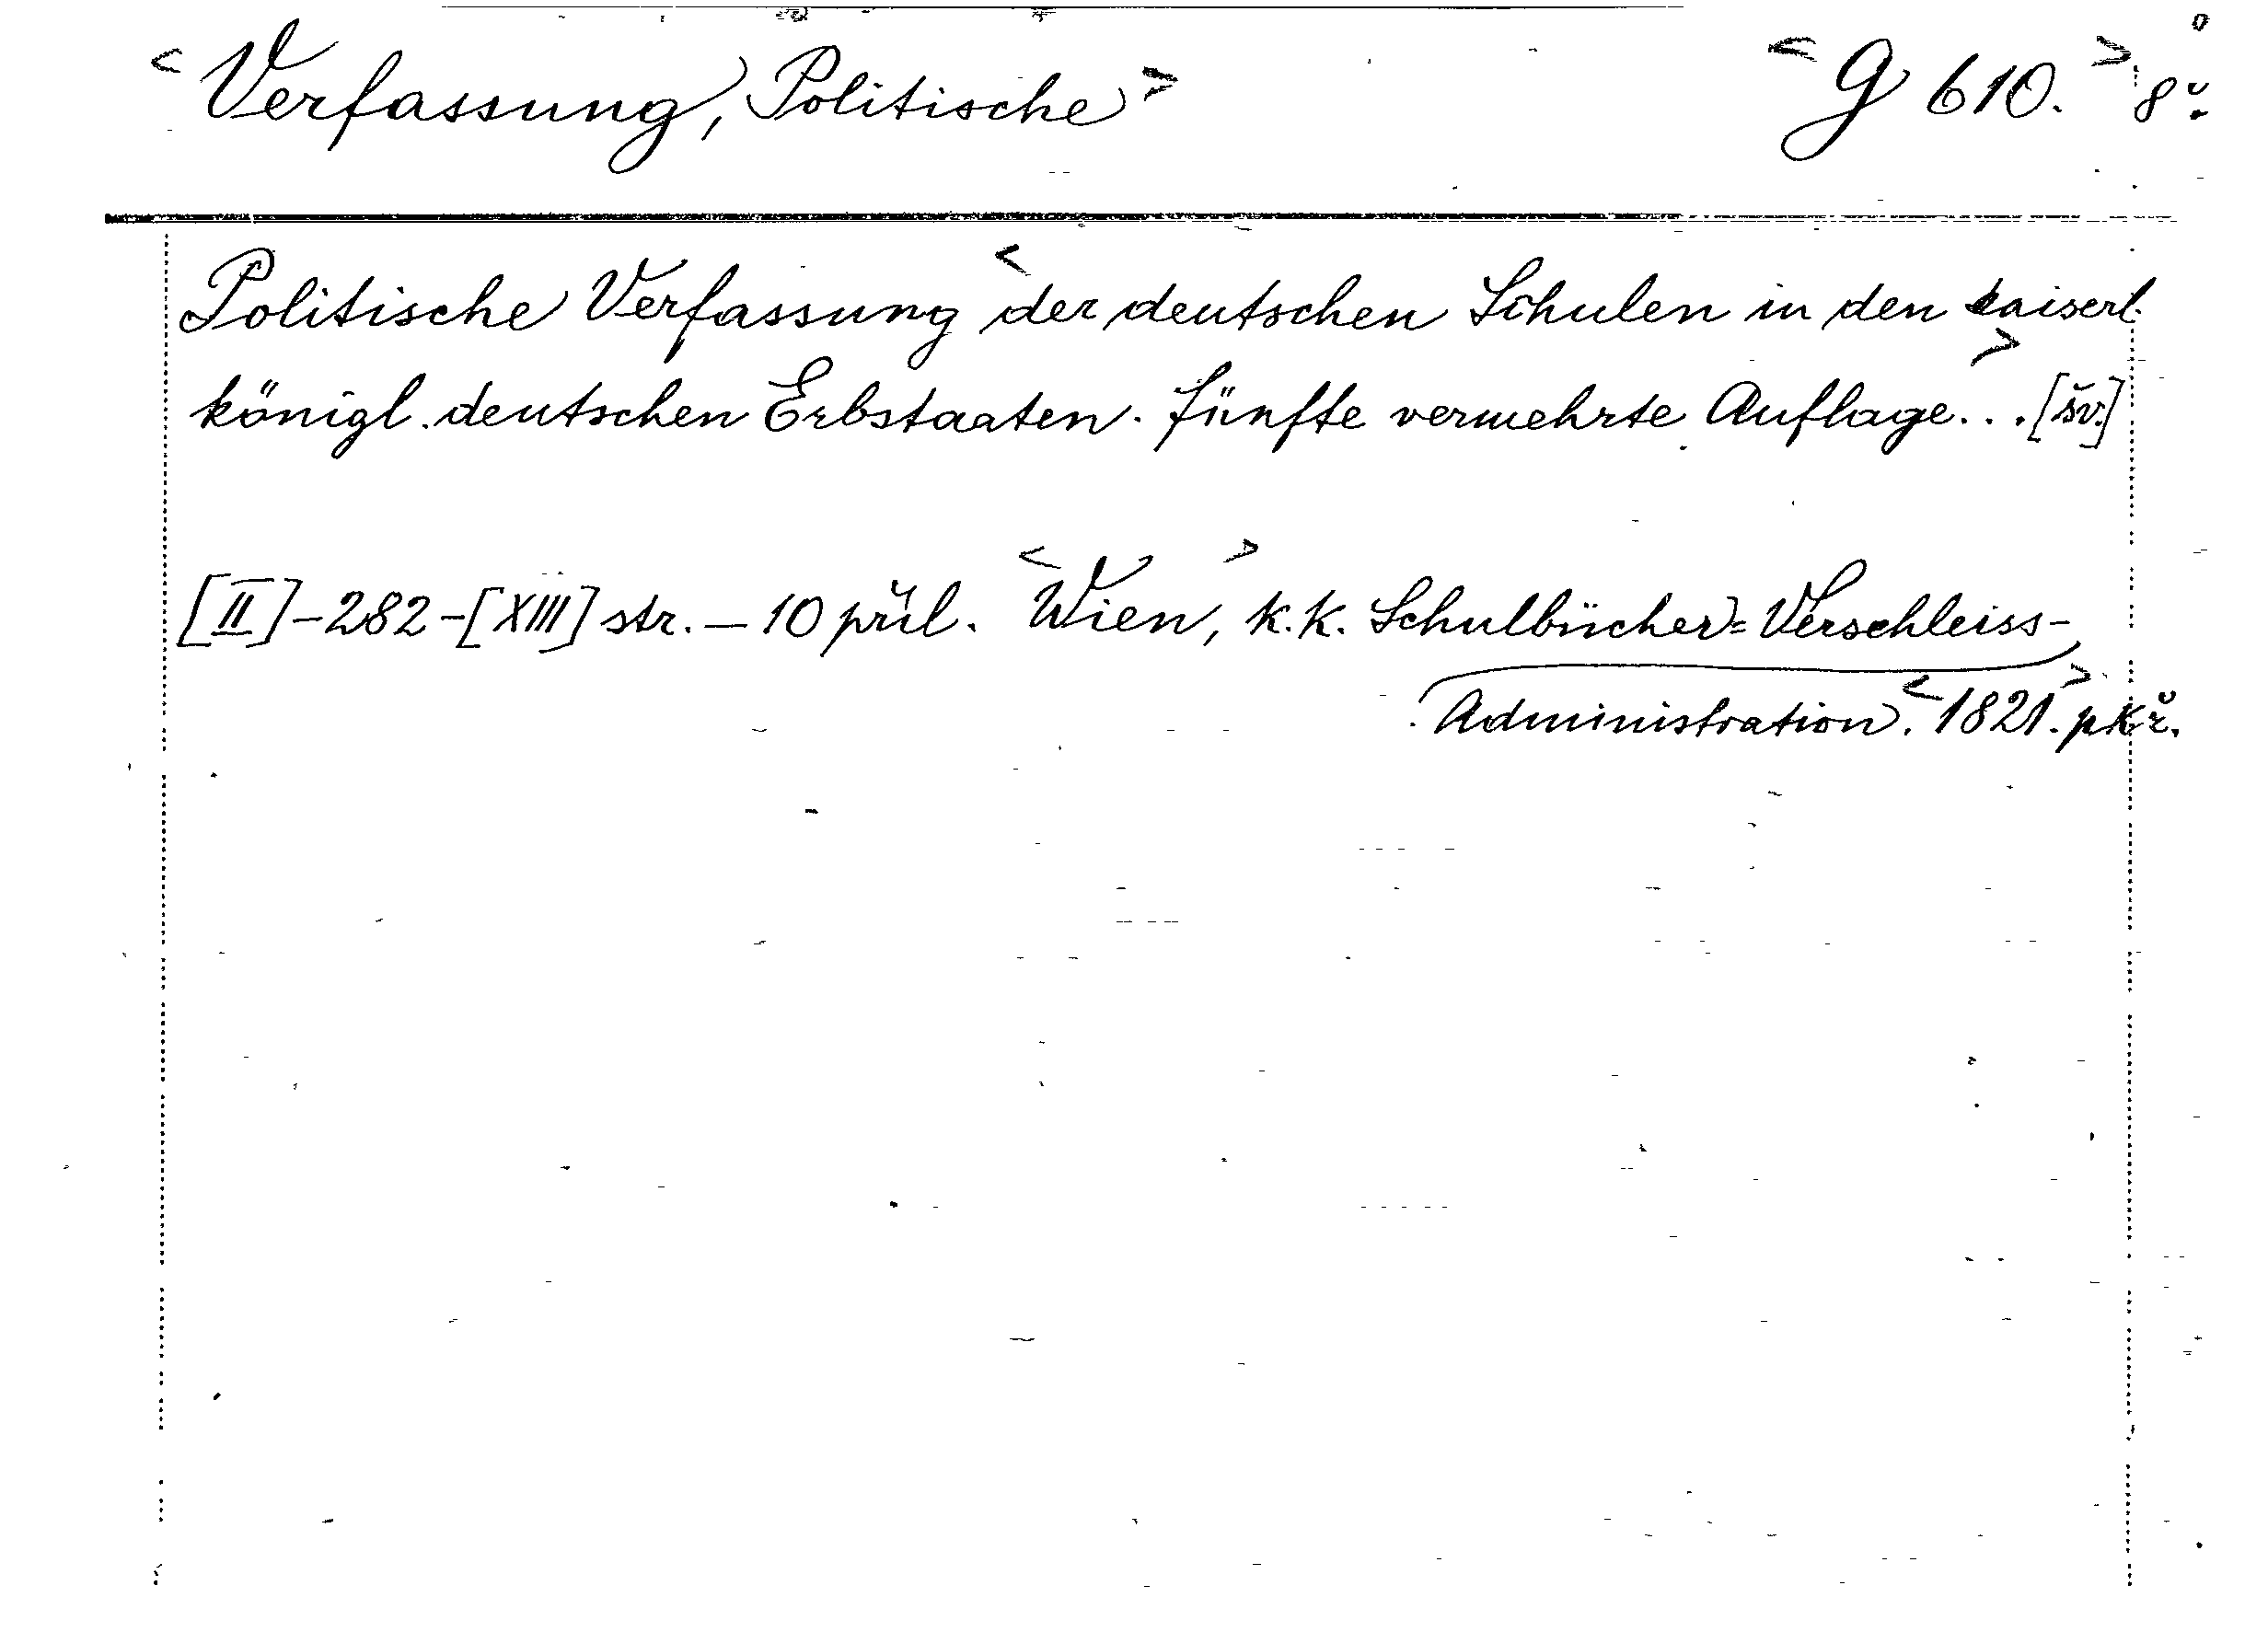 <Verfassung, Politische> <G 610.> 8°.
Politische Verfassung <der deutschen Schulen in den kaiserl.
königl. deutschen Erbstaaten. Fünfte vermehrte Auflage>... [šv.]
[II]-282-[XIII] str. — 10 příl. <Wien,> k.k. Schulbücher=Verschleiss-
Administration. <1821.> pkř.